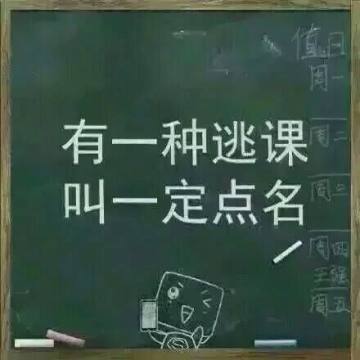 有一种逃课
叫一定点名
值日
周一
周二
周三
周四
王强
周五